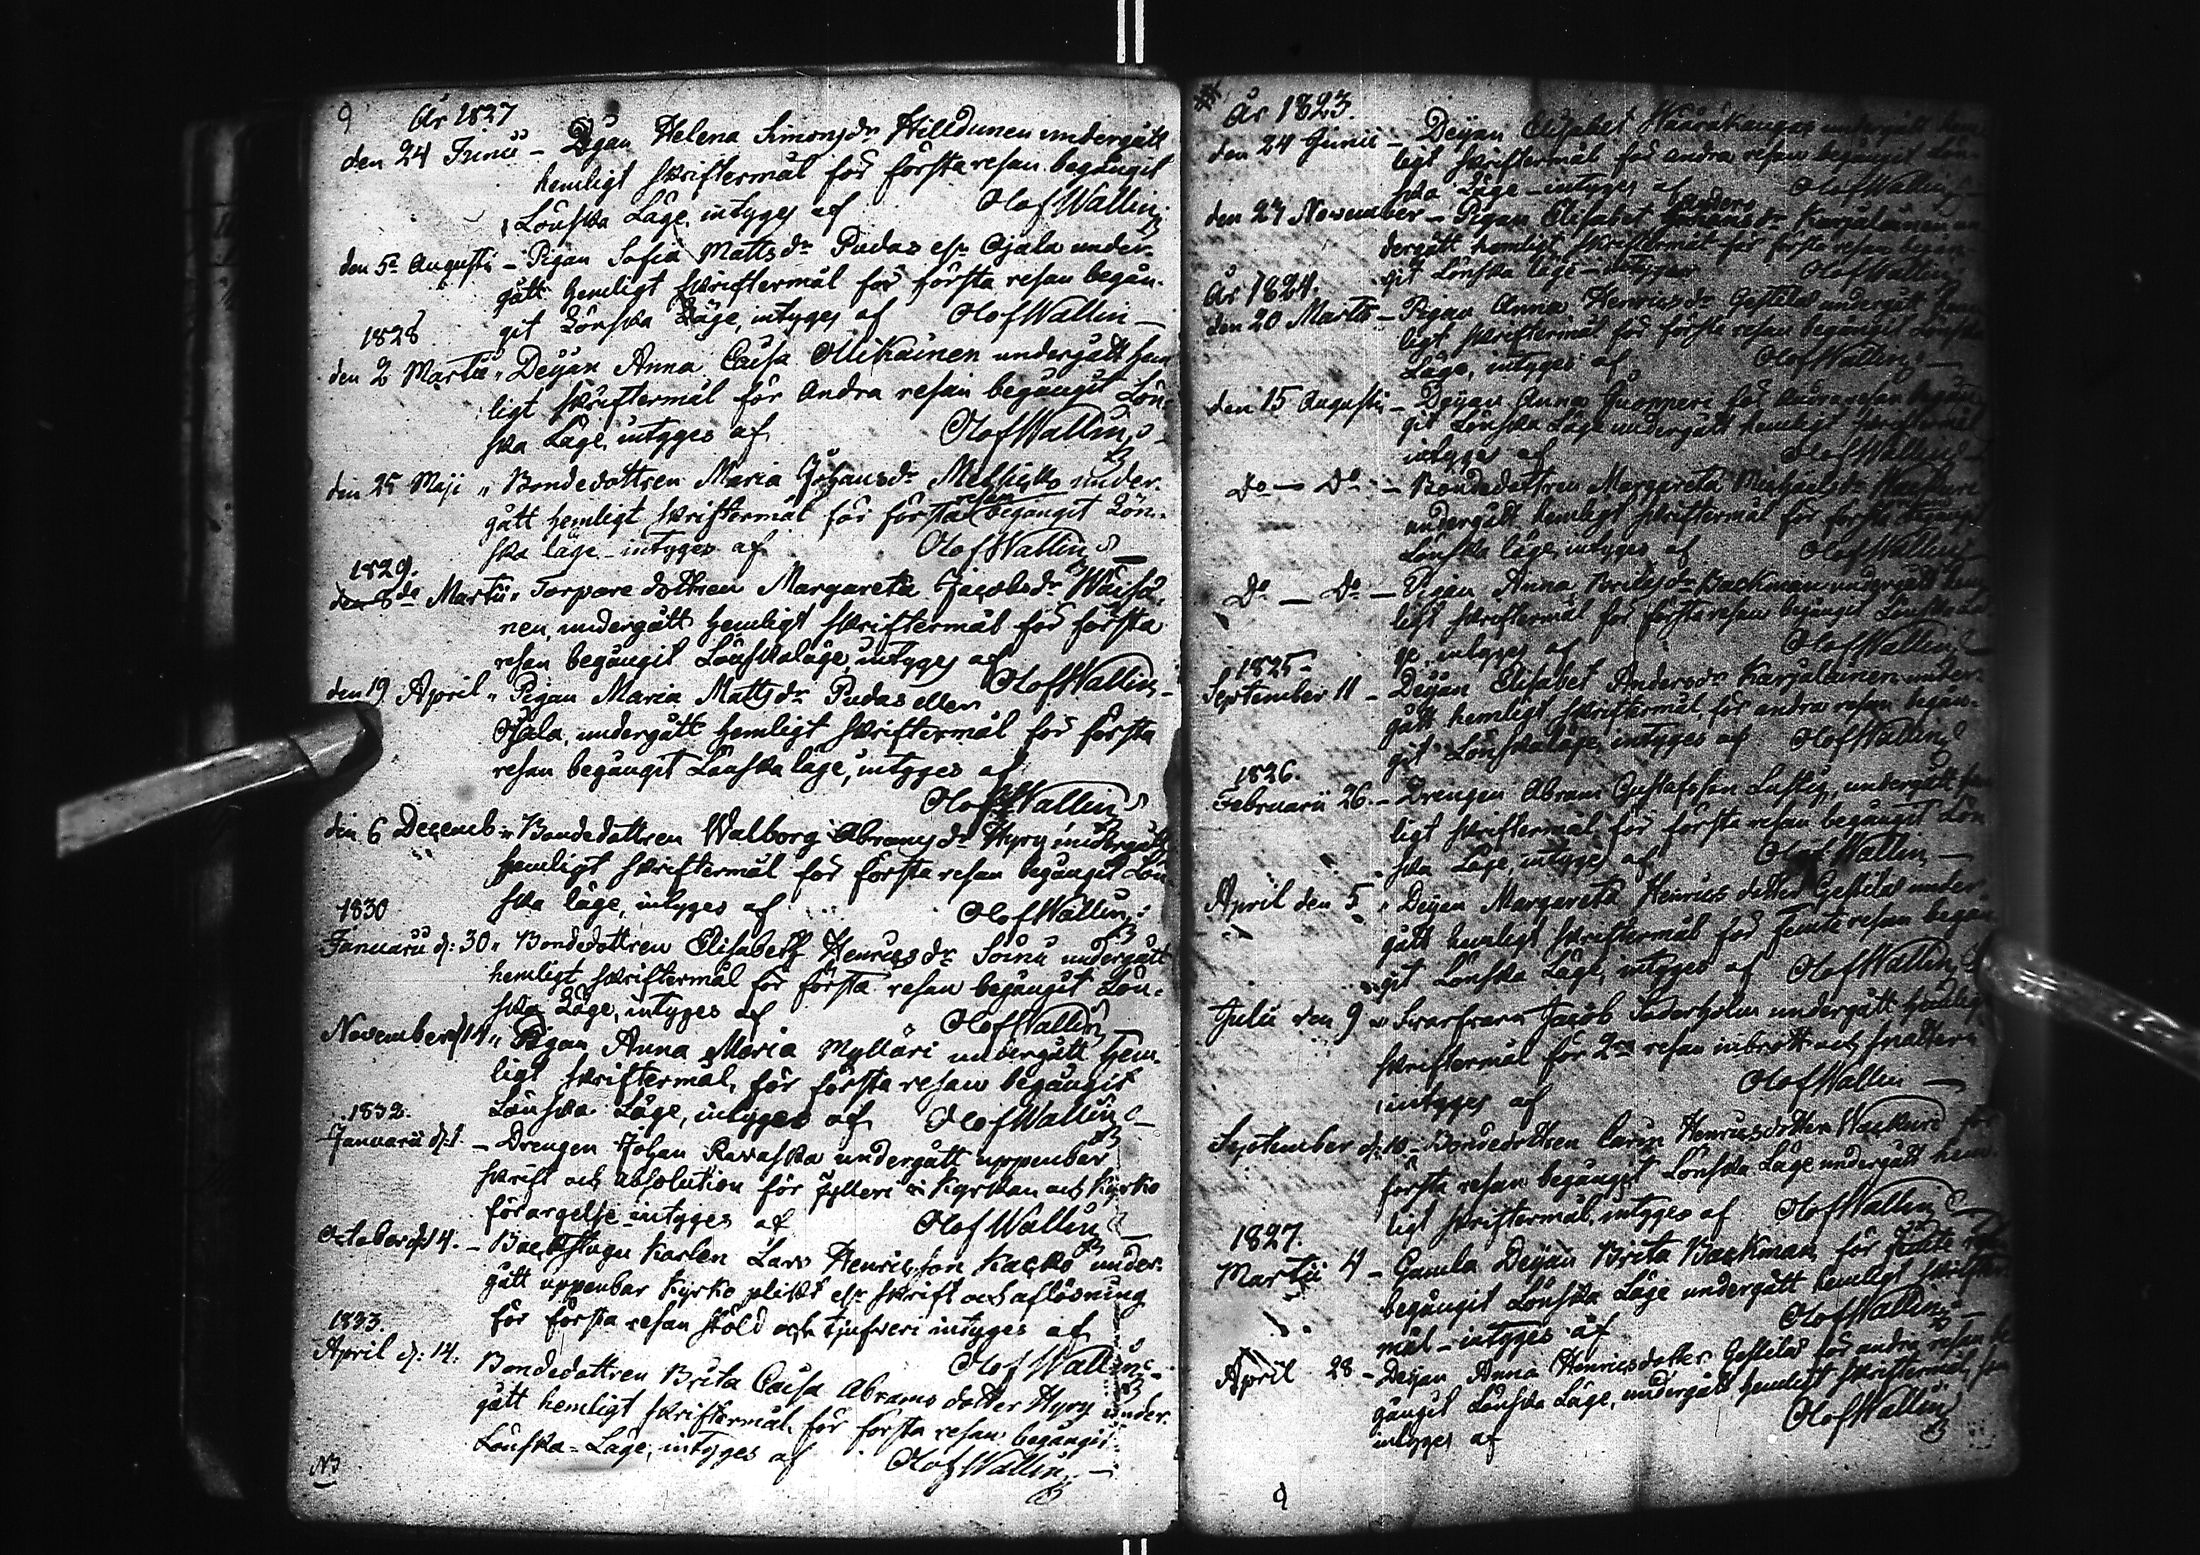 9 År 1827
den 24 Junii – Pigan Helena Simonsdr Hilldunen undergått
hemligt skriftermål för första resan begångit
Lönska Läge, intyges af Olof Wallin
den 5te Augusti – Pigan Sofia Mattsdr Pudas elr Ojala under-
gått hemligt skriftermål för första resan began-
git Lönska Läge, intyges af Olof Wallin –
1828
den 2 Martii „ Deijan Anna Caisa Ollikainen undergått hem
ligt skriftermål för andra resan begångit Lön-
ska Läge, intyges af Olof Wallin
den 25 Maji „ Bondedottren Maria Johansdr under-
gått hemligt skriftermål för första resan begångit Lön-
ska läge – intyges af Olof Wallin
1829.
den 8de Martii „ Torpare dottren Margareta Jacobsdr Waisä-
nen, undergått hemligt skriftermål för första
resan begångit Lönskaläge, intyges af
Olof Wallin –
den 19 April „ Pigan Maria Mattsdr Pudas eller
Ojala, undergått hemligt skriftermål för första
resan begångit Lönska läge, intyges af
Olof Wallin
den 6 Decemb: „ Bondedottren Walborg Abramsdr Hyry undergått
hemligt skriftermål för första resan begångit Lön-
ska läge, intyges af Olof Wallin
1830
Januarii d: 30 „ Bondedottren Elisabeth Henricsdr Soinu undergått
hemligt skriftermål för första resan begångit Lön-
ska Läge, intyges af Olof Wallin
November d 14 „ Pigan Anna Maria Mylläri undergått hem-
ligt skriftermål, för första resan begångit
Lönska Läge, intyges af Olof Wallin
1832.
Januarii d: 1. – Drengen Johan Ravaska undergått uppenbar
skrift och absolution för fylleri i Kyrkan och Kyrko
förargelse – intyges af Olof Wallin
October d 14. – Backstugu Karlen Lars Henricsson Kacko under-
gått uppenbar Kyrko plikt elr skrift och aflösning
för första resan stöld och tjufveri intyges af
Olof Wallin
1833.
April d: 14. Bondedottren Brita Caisa Abrams dotter Hyry under-
gått hemligt skriftermål, för första resan begångit
Lönska-Läge, intyges af Olof Wallin –
År 1823.
den 24 Junii – Deijan Elisabet undergått hem-
ligt skriftermål för andra resan begångit Lön-
ska Läge – intyges af Olof Wallin
den 27 November – Pigan Elisabet Andersdr Karjalainen un-
dergått hemligt skriftermål för första resan begån-
git Lönska läge – intyges Olof Wallin
År 1824.
den 20 Martii – Pigan Anna Henricsdr Gestilä undergått hem-
ligt skriftermål för första resan begångit Lönska
Läge, intyges af Olof Wallin –
den 15 Augusti – Deijan Anna för andra resan begån-
git Lönska Läge undergått hemligt skriftermål
intyges af Olof Wallin
Do – Do – Bondedottren Margareta Michaelsdr
undergått hemligt skriftermål för första begångit
Lönska läge, intyges af Olof Wallin
Do – Do – Pigan Anna Backman undergått hem-
ligt skriftermål för första resan begångit Lönska Lä-
ge, intyges af Olof Wallin
1825 –
September 11 – Deijan Elisabet Andersdr Karjalainen under-
gått hemligt skriftermål, för andra resan begån-
git Lönskaläge, intyges af Olof Wallin
1826.
Februarii 26. – Drengen Abram Gustafsson Lustig, undergått hem
ligt skriftermål för första resan begångit Lön
ska Läge, intyges af Olof Wallin –
April den 5 „ Deijan Margareta Henrics dotter Gestilä under-
gått hemligt skriftermål för femte resan begån
git Lönska Läge, intyges af Olof Wallin
Julii den 9 „ Jacob Söderholm undergått hemligt
skriftermål för 2dra resan inbrott och snatteri
intyges af Olof Wallin –
September d: 10 – Bondedottren Carin Henricsdotter Wackuri för
första resan begångit Lönska Läge undergått hem-
ligt skriftermål, intyges af Olof Wallin
1827.
Martii 4 – Gamla Deijan Brita Backman, för femte resan
begångit Lönska Läge undergått hemligt skrifter-
mål – intyges af Olof Wallin
April 28 – Deijan Anna Henricsdotter Gestilä för andra resan be
gångit Lönska Läge, undergått hemligt skriftermål, som
intyges af Olof Wallin
9